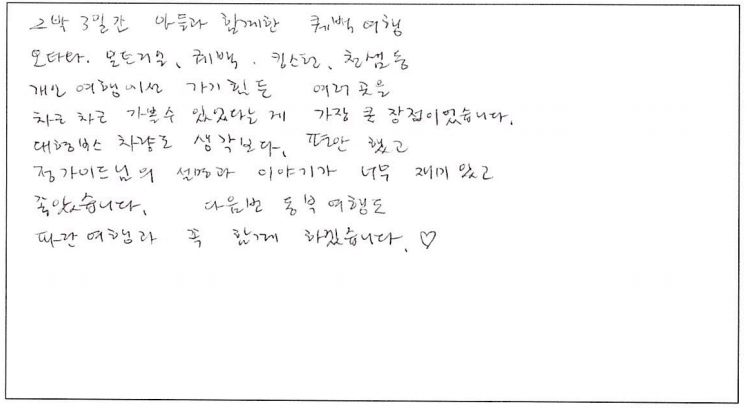 2박 3일간 아들과 함께한 퀘백 여행
오타와. 몬트리올, 퀘백. 킹스턴, 천섬 등
개인 여행에선 가기 힌든 여러 곳을
차로 차로 가볼수 있었다는 게 가장 큰 장점이었습니다.
대형버스 차량도 생각보다, 편안 했고
정가이드님의 설명과 이야기가 너무 재미 있고
좋았습니다. 다음번 동부 여행도
파란여행과 꼭 함께 하겠습니다. ♡